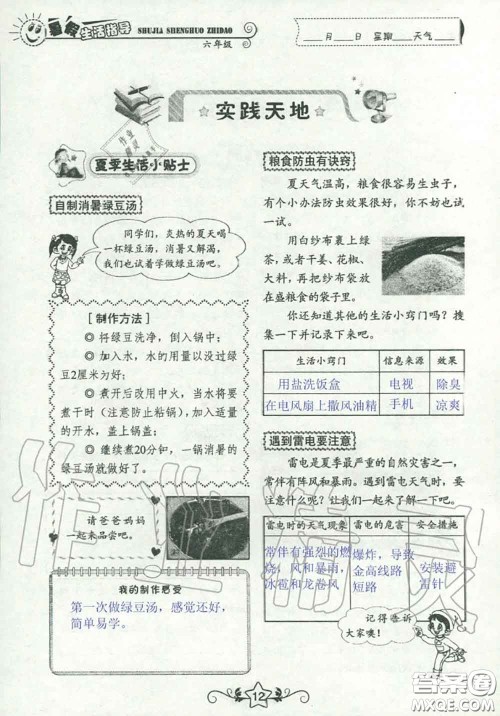 暑假生活指导
SHUJIA SHENGHUO ZHIDAO
六年级
月 日 星期 天气
实践天地
夏季生活小贴士
自制消暑绿豆汤
同学们，炎热的夏天喝
一杯绿豆汤，消暑又解渴，
我们也试着学做绿豆汤吧。
[制作方法]
◎ 将绿豆洗净，倒入锅中；
◎ 加入水，水的用量以没过绿
豆2厘米为好；
◎ 煮开后改用中火，当水将要
煮干时（注意防止粘锅），加入适量
的开水，盖上锅盖；
◎ 继续煮20分钟，一锅消暑的
绿豆汤就做好了。
请爸爸妈妈
一起来品尝吧。
我的制作感受
第一次做绿豆汤，感觉还好，
简单易学。
粮食防虫有诀窍
夏天气温高，粮食很容易生虫子，
有个小办法防虫效果很好，你不妨也试
一试。
用白纱布裹上绿
茶，或者干姜、花椒、
大料，再把纱布袋放
在盛粮食的袋子里。
你还知道其他的生活小窍门吗？搜
集一下并记录下来吧。
生活小窍门 信息来源 效果
用盐洗饭盒 电视 除臭
在电风扇上撒风油精 手机 凉爽
遇到雷电要注意
雷电是夏季最严重的自然灾害之一，
常伴有阵风和暴雨。遇到雷电天气时，要
注意什么呢？让我们一起来了解一下吧。
雷电时的天气现象 雷电的危害 安全措施
常伴有强烈的燃
烧，风和暴雨，
冰雹和龙卷风
爆炸，导致
金高线路
短路
安装避
雷针
记得告诉
大家噢！
12
作业精灵
答案圈
MXQE.COM